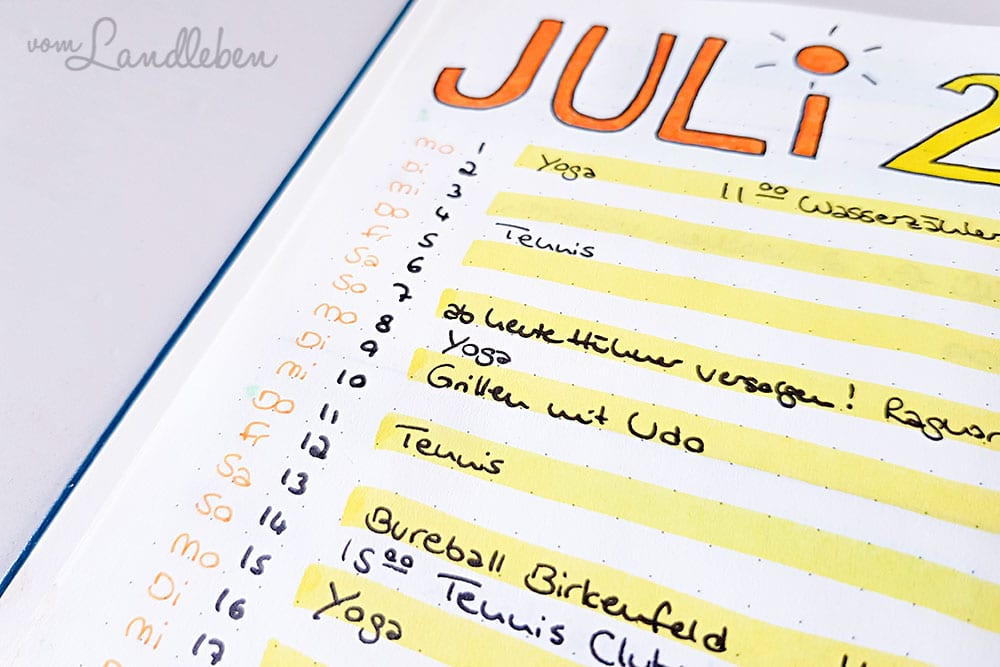 vom Landleben
JULi 2
Mo 1 Yoga 11⁰⁰ Wasserzähler
Di 2
Mi 3
Do 4 Tennis
Fr 5
Sa 6
So 7 ab heute Hühner versorgen! Ragnar
Mo 8 Yoga
Di 9 Grillen mit Udo
Mi 10
Do 11 Tennis
Fr 12
Sa 13 Bureball Birkenfeld
So 14 15⁰⁰ Tennis Club
Mo 15 Yoga
Di 16
Mi 17